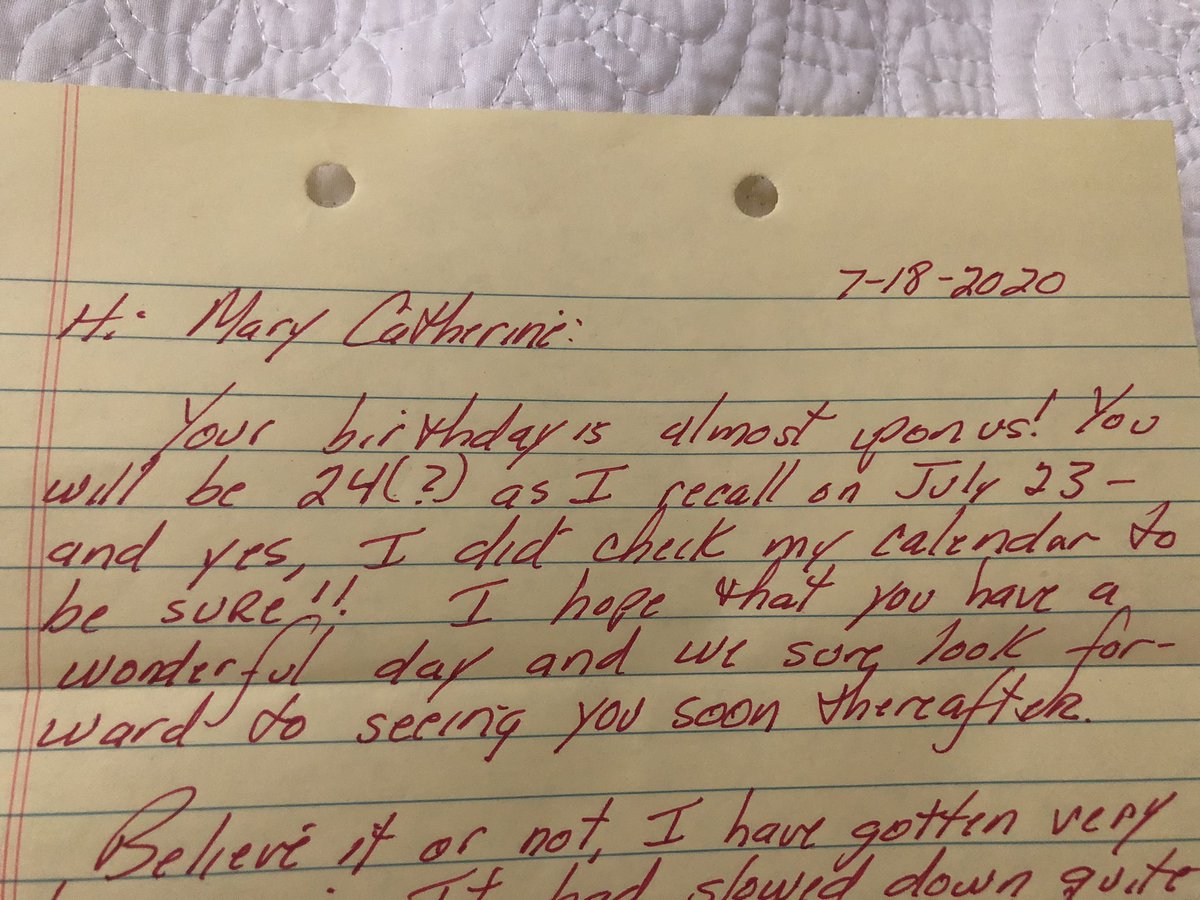 7-18-2020
Hi Mary Catherine:
Your birthday is almost upon us! You
will be 24(?) as I recall on July 23-
and yes, I did check my calendar to
be SURE!! I hope that you have a
wonderful day and we sure look for-
ward to seeing you soon thereafter.
Believe it or not, I have gotten very
It had slowed down quite